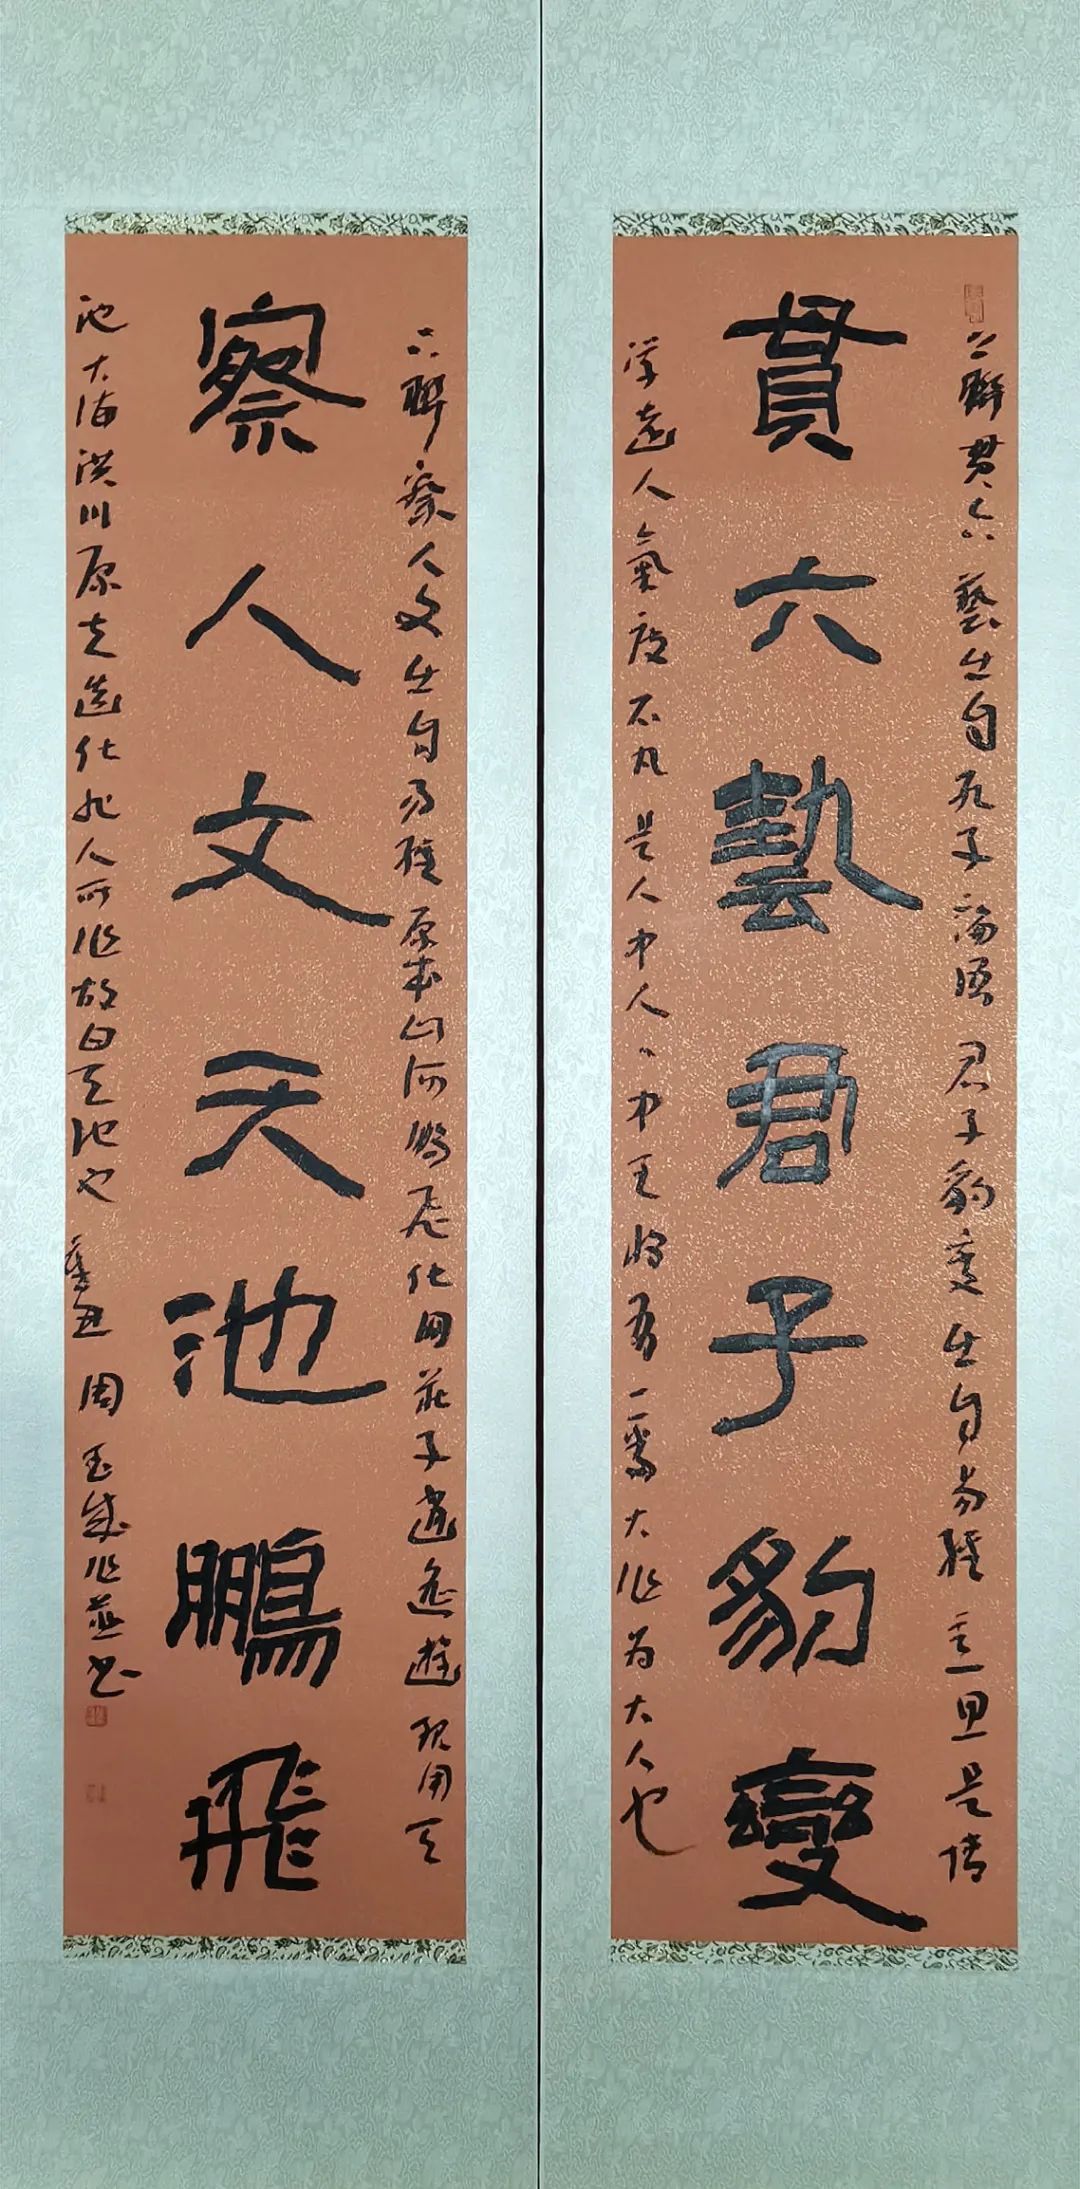 上聯貫六藝出自孔子論語君子豹變出自易經主旦是博
貫六藝君子豹變
学遠人氣度不凡是人中人人中王將有一番大作为大人也
下聯察人文出自易經原本山河鵬飛化用莊子逍遙遊現用天
察人文天池鵬飛
池大海洪川原夫造化非人所作故曰天池也 辛丑 周玉成作並书